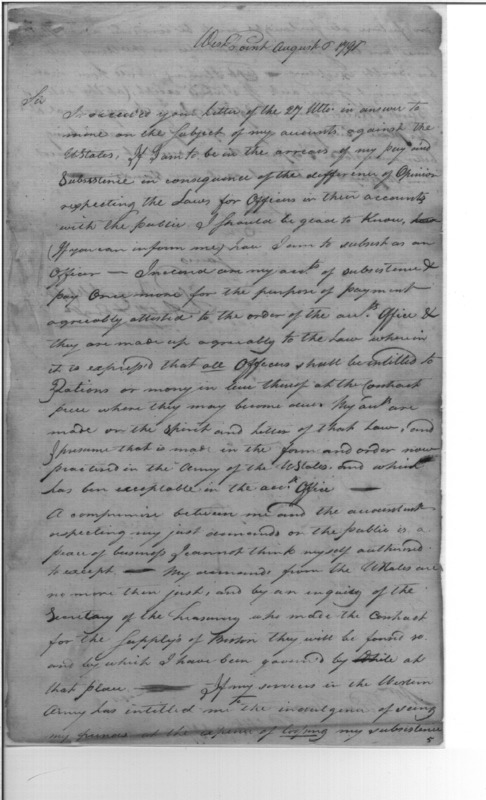 West Point August 6 1795
Sir
I received your letter of the 27 Ulto. in answer to
mine on the subject of my accounts against the
UStates, If I am to be in the arrears of my pay and
Subsistence in consequence of the defference of Opinion
respecting the Laws for Officers in their accounts
with the public I should be glad to Know,
(If you can inform me) how I am to subsist as an
Officer — Inclosed are my accts of subsistence &
pay Once more for the purpose of payment
agreeably altered to the order of the acts Office &
they are made up agreeally to the Law wherein
it is expressed that all Officers shall be entitled to
Rations or money in lieu thereof at the Contract
price where they may become due. My acts are
made on the Spirit and letter of that Law, and
I presume that is made in the form and order now
practised in the Army of the UStates. and which
has ben exceptable in the acts Office —
A compromise between me and the accountant
respecting my just demands on the public is a
peace of business I cannot think myself authorised
to except — My demands from the UStates are
no more then just, and by an inquiry of the
Secretary of the Treasury who made the Contract
for the Supply's of Boston they will be found so.
and by which I have been governed by while at
that place — If my services in the Western
Army has intitled me to the indulgence of seing
my friends at the expence of loosing my subsistence
5